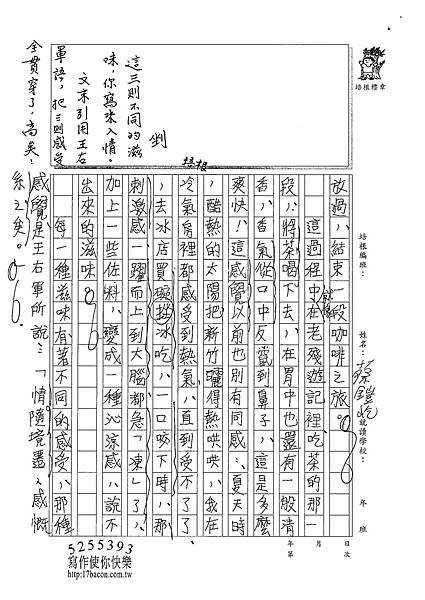 培根標章
培根編班：
姓名：
就讀學校：
年 班
年 月 日
第 次
放過，結束一段咖啡之旅。
這過程中就像在老殘遊記裡吃茶的那一
段，將茶喝下去，在胃中也還有一般清
香，香氣從口中反竄到鼻子，這是多麼
爽快！這感覺以前也別有同感：夏天時
，酷熱的太陽把新竹曬得熱哄哄，我在
冷氣房裡都感受到熱氣，直到受不了了
，去冰店買碗挫冰吃，一口咬下時，那
刺激感一躍而上到大腦都急「凍」了，
加上一些佐料，變成一種沁涼感，說不
出來的滋味。
每一種滋味有著不同的感受，那種
感覺是王右軍所說：「情隨境遷，感慨
係之矣。」
培根
這三則不同的滋
味，你寫來入情。
文末引用王右
軍語，把三則感受
全貫穿了，高矣！
5255393
寫作使你快樂
http://17bacon.com.tw